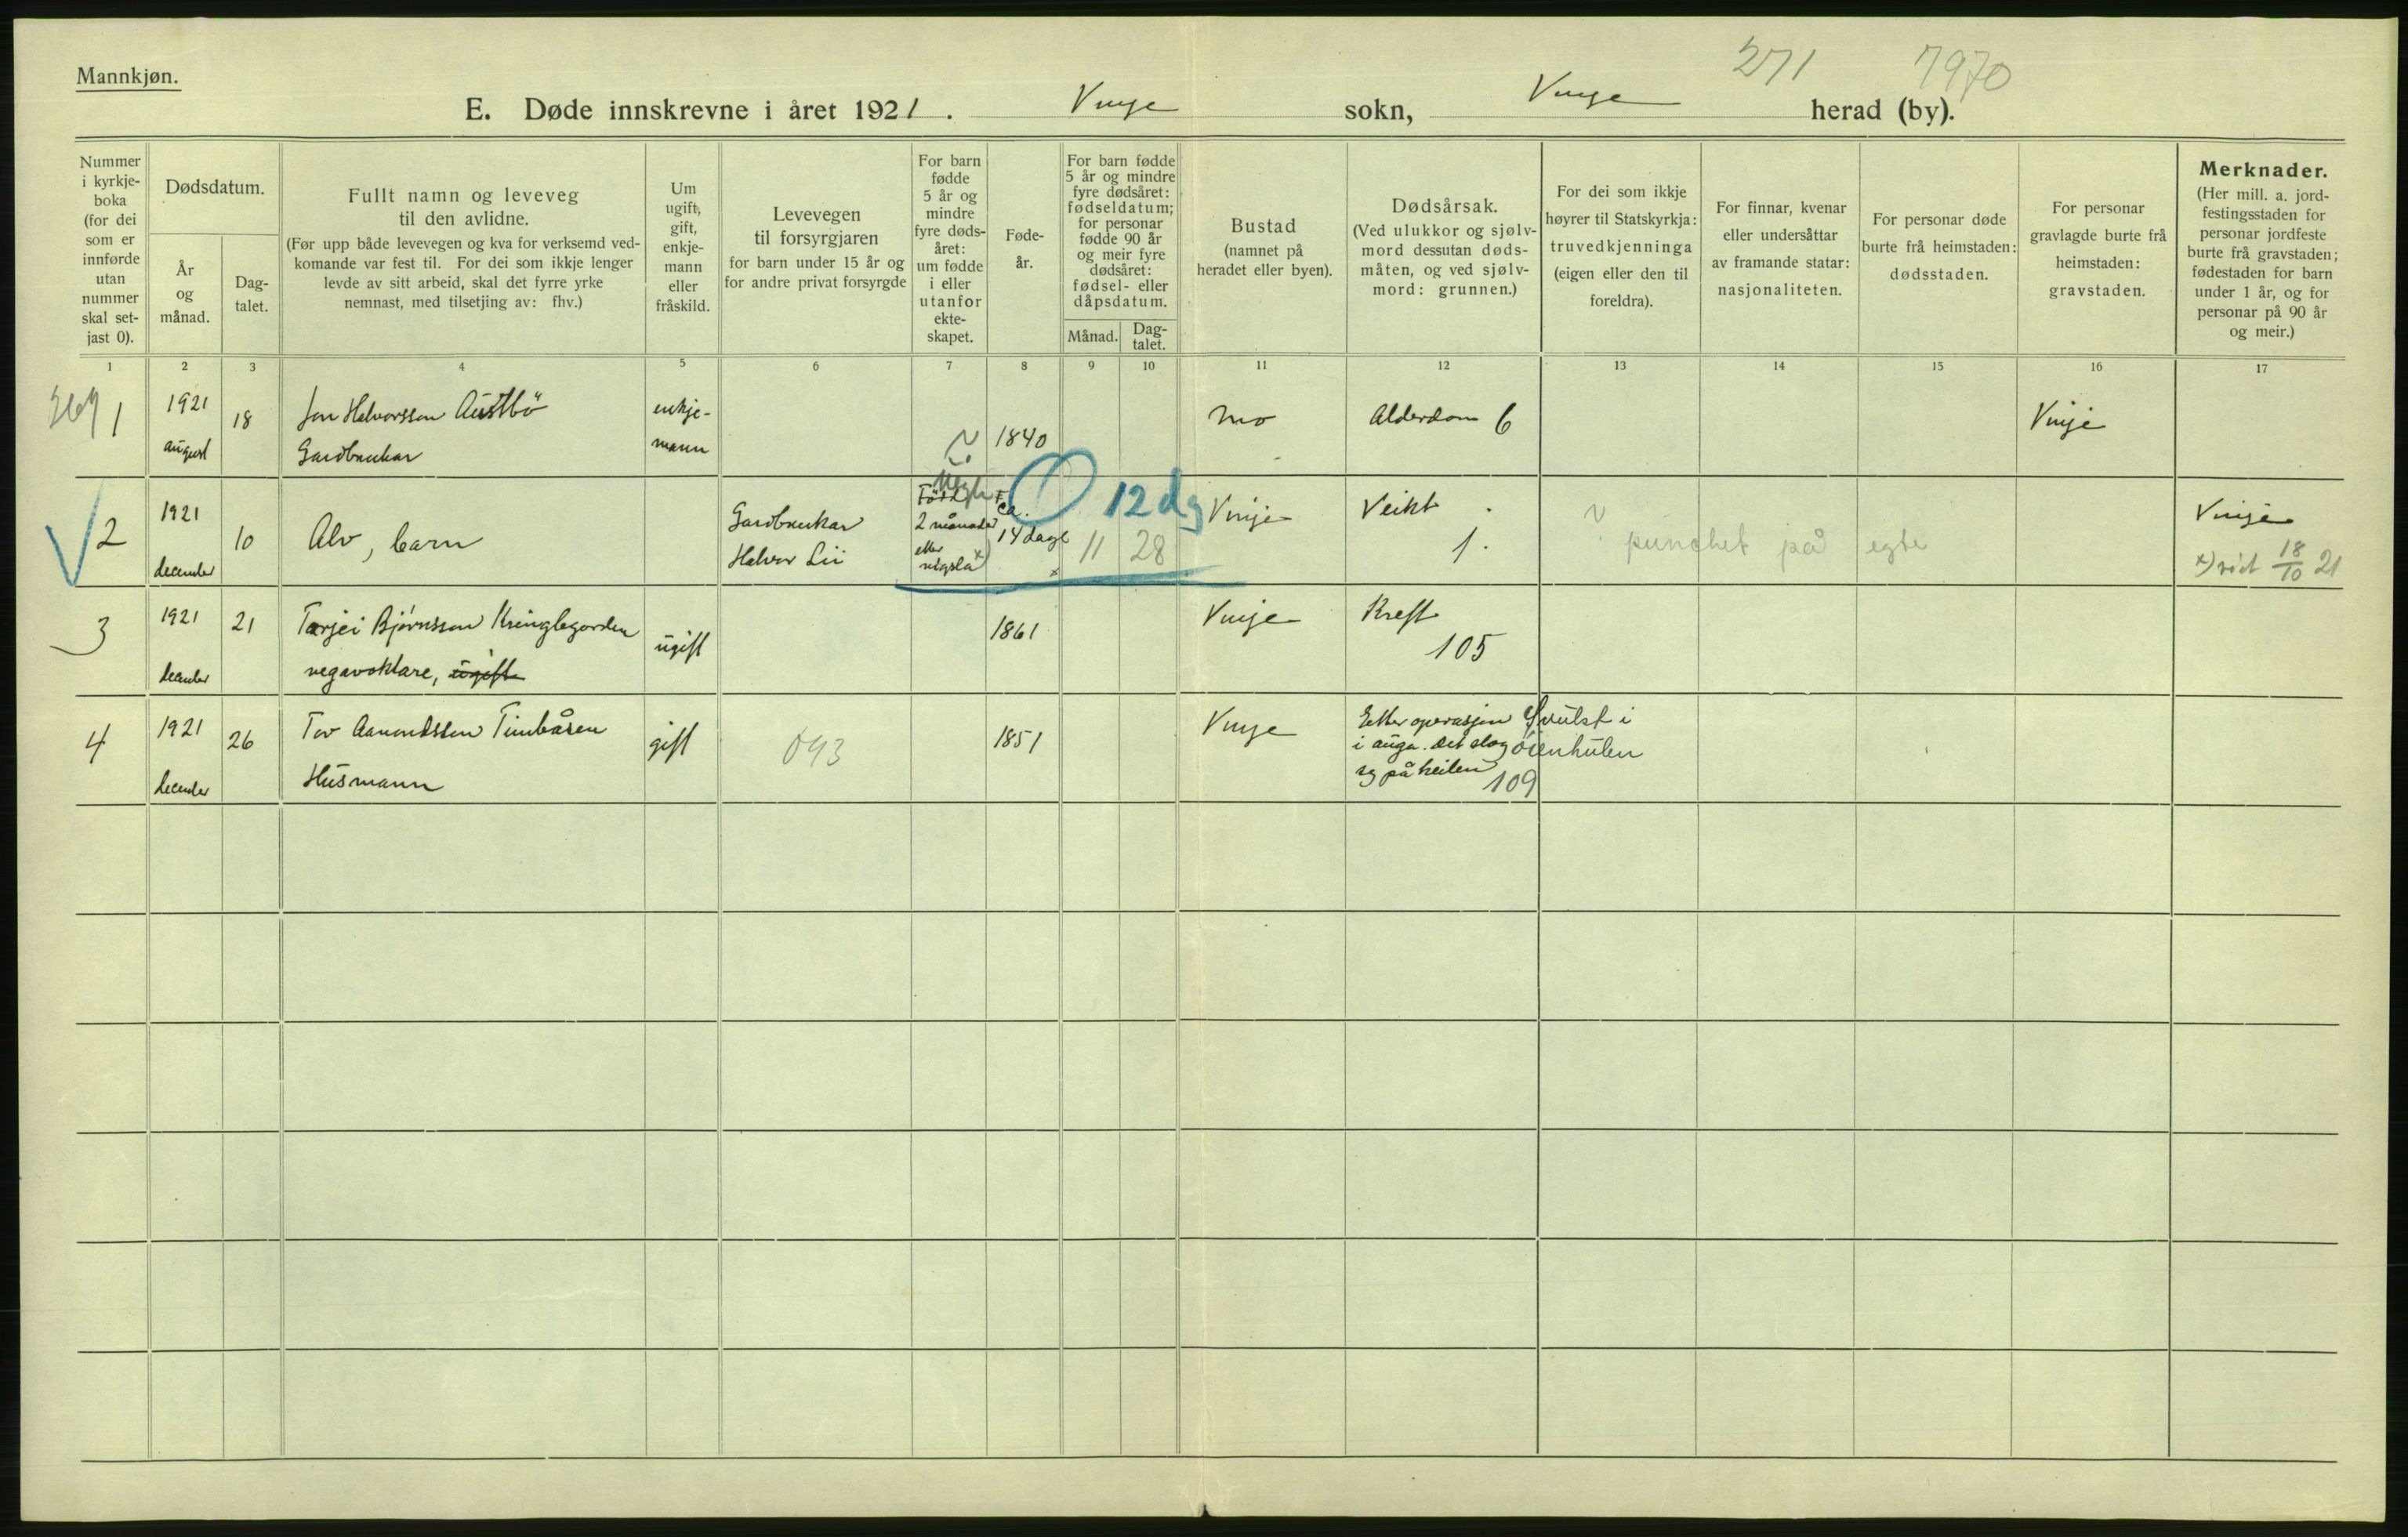 Mannkjøn.
271 7970
E. Døde innskrevne i året 1921. Vinje sokn, Vinje herad (by).
Nummer
i kyrkje-
boka
(for dei
som er
innførde
utan
nummer
skal set-
jast 0).
Dødsdatum.
År
og
månad.
Dag-
talet.
Fullt namn og leveveg
til den avlidne.
(Før upp både levevegen og kva for verksemd ved-
komande var fest til. For dei som ikkje lenger
levde av sitt arbeid, skal det fyrre yrke
nemnast, med tilsetjing av: fhv.)
Um
ugift,
gift,
enkje-
mann
eller
fråskild.
Levevegen
til forsyrgjaren
for barn under 15 år og
for andre privat forsyrgde
For barn
fødde
5 år og
mindre
fyre døds-
året:
um fødde
i eller
utanfor
ekte-
skapet.
Føde-
år.
For barn fødde
5 år og mindre
fyre dødsåret:
fødseldatum;
for personar
fødde 90 år
og meir fyre
dødsåret:
fødsel- eller
dåpsdatum.
Månad.
Dag-
talet.
Bustad
(namnet på
heradet eller byen).
Dødsårsak.
(Ved ulukkor og sjølv-
mord dessutan døds-
måten, og ved sjølv-
mord: grunnen.)
For dei som ikkje
høyrer til Statskyrkja:
truvedkjenninga
(eigen eller den til
foreldra).
For finnar, kvenar
eller undersåttar
av framande statar:
nasjonaliteten.
For personar døde
burte frå heimstaden:
dødsstaden.
For personar
gravlagde burte frå
heimstaden:
gravstaden.
Merknader.
(Her mill. a. jord-
festingsstaden for
personar jordfeste
burte frå gravstaden;
fødestaden for barn
under 1 år, og for
personar på 90 år
og meir.)
1 2 3 4 5 6 7 8 9 10 11 12 13 14 15 16 17
1
1921
august
18
Jon Halvorsson Austbö
Gardbrukar
enkje-
mann
1840
Mo
Alderdom 6
Vinje
2
1921
december
10
Alv, barn
Gardbrukar
Halvor Lii
Född
2 månader
etter
vigsla x)
ca.
14 dagl
12 dg
11 28
Vinje
Veikt
1.
punchet på egte
Vinje
x) viet 18/10 21
3
1921
december
21
Tarjei Bjørnsson Kringlegarden
vegavaktare, ugift
ugift
1861
Vinje
Kreft
105
4
1921
december
26
Tov Aamundsson Timbåsen
Husmann
gift
043
1851
Vinje
Etter operasjon Svulst i
i auga. Det slog öienhulen
seg på heilen
109